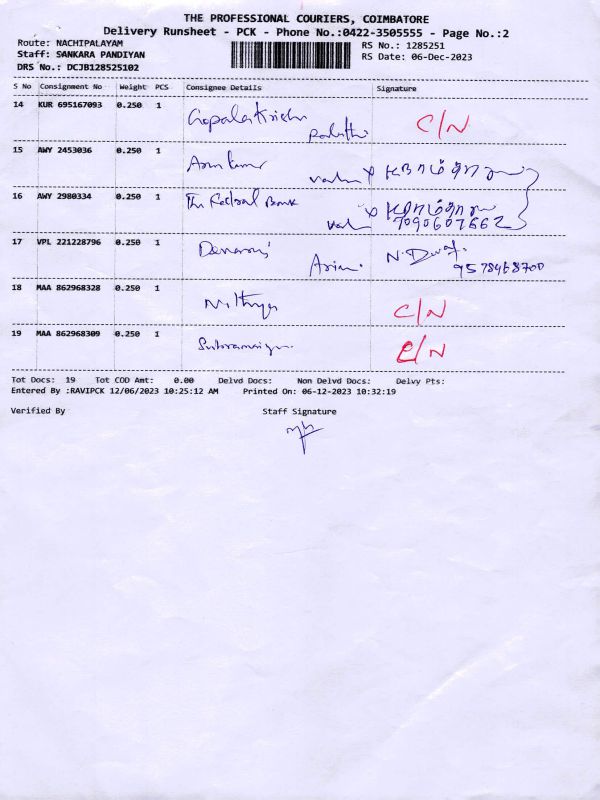 THE PROFESSIONAL COURIERS, COIMBATORE
Delivery Runsheet - PCK - Phone No.:0422-3505555 - Page No.:2
Route: NACHIPALAYAM
RS No.: 1285251
Staff: SANKARA PANDIYAN
RS Date: 06-Dec-2023
DRS No.: DCJB128525102
S No Consignment No Weight PCS Consignee Details Signature
14 KUR 695167093 0.250 1 Gopalakrishn C/N
15 AWY 2453036 0.250 1 Arun kumar
16 AWY 2980334 0.250 1 The Federal Bank
7090607662
17 VPL 221228796 0.250 1
9578468700
18 MAA 862968328 0.250 1 Nithya C/N
19 MAA 862968309 0.250 1 C/N
Tot Docs: 19 Tot COD Amt: 0.00 Delvd Docs: Non Delvd Docs: Delvy Pts:
Entered By :RAVIPCK 12/06/2023 10:25:12 AM Printed On: 06-12-2023 10:32:19
Verified By Staff Signature